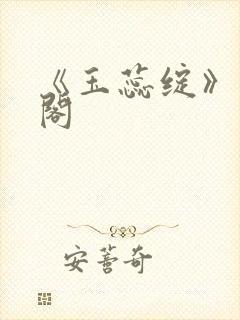 《玉蕊绽》
阁
安蔷奇